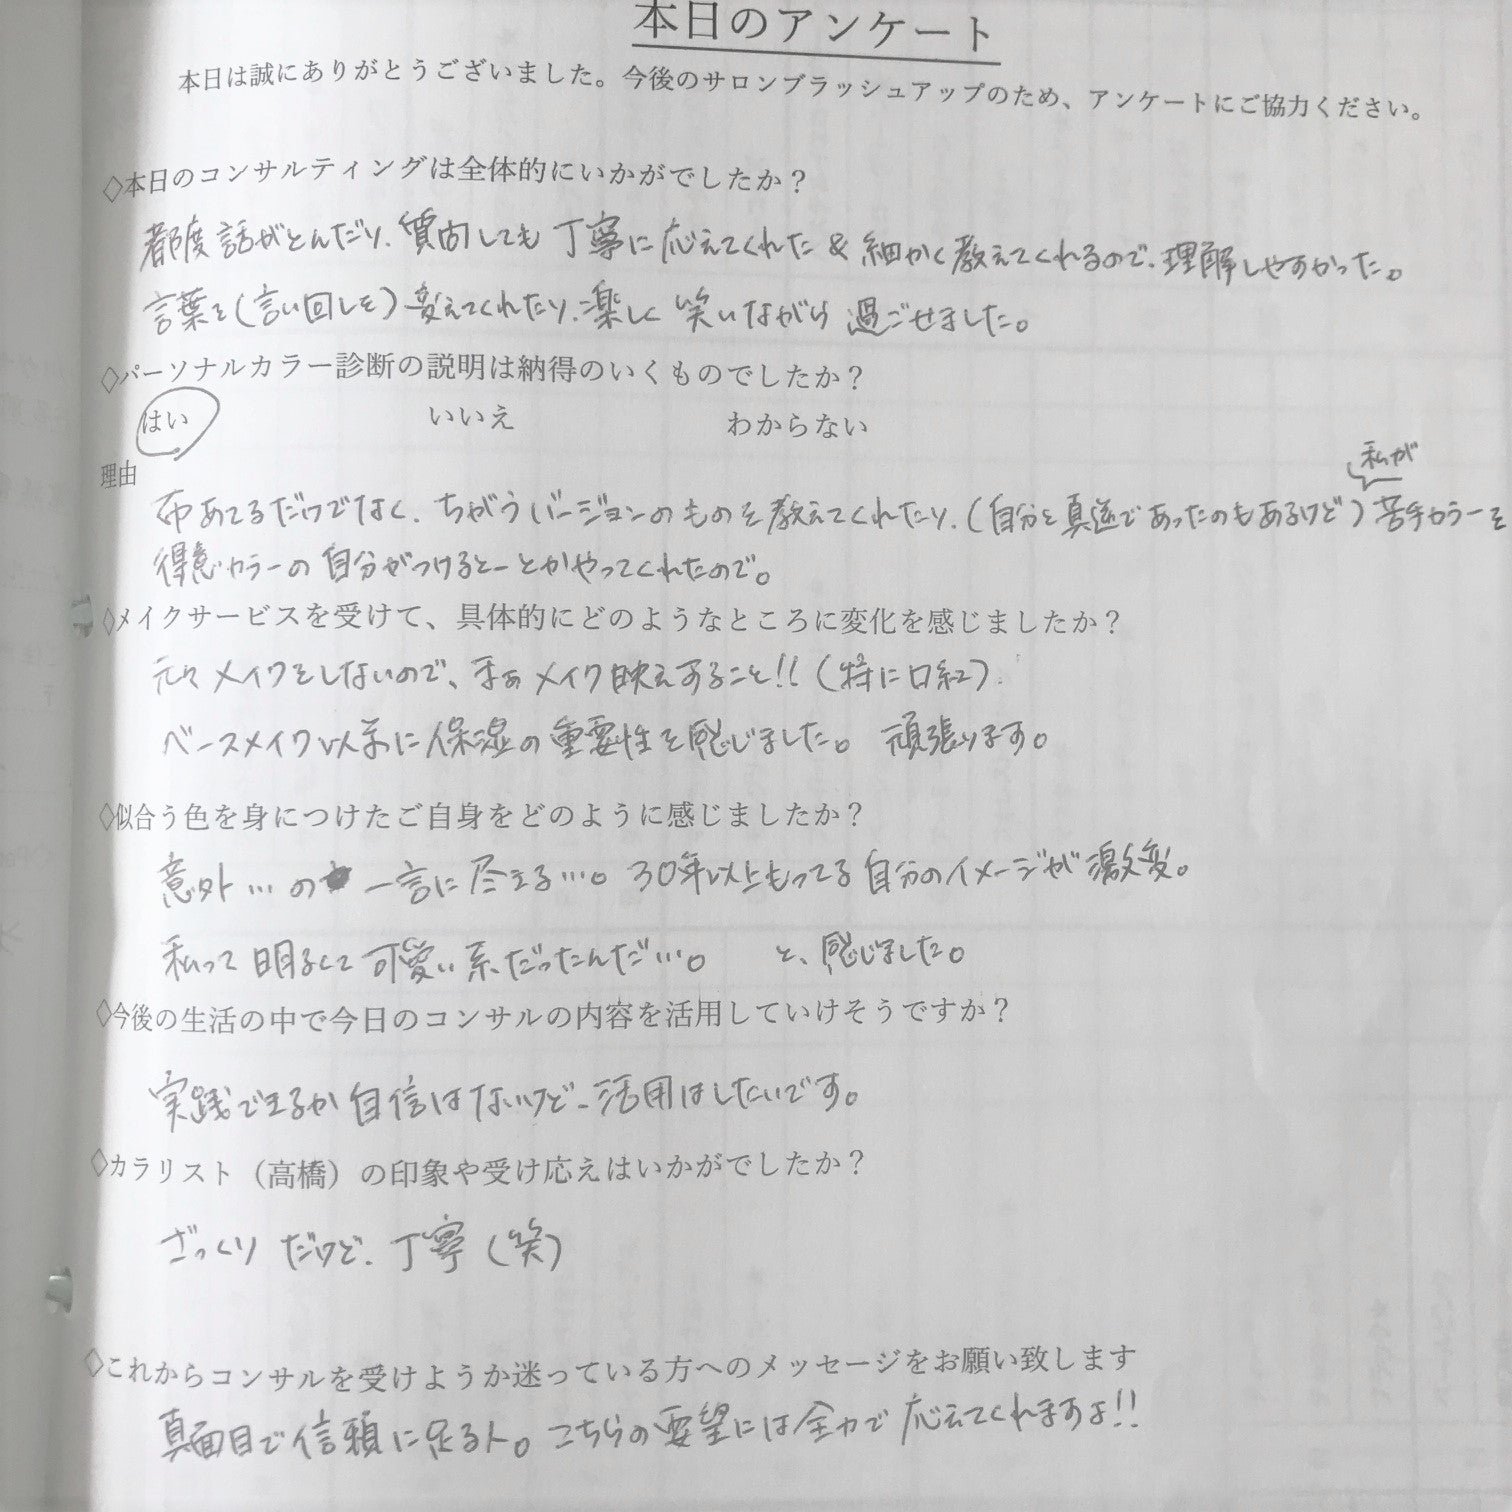 本日のアンケート
本日は誠にありがとうございました。今後のサロンブラッシュアップのため、アンケートにご協力ください。
◇本日のコンサルティングは全体的にいかがでしたか？
都度話がとんだり、質問しても丁寧に応えてくれた&細かく教えてくれるので、理解しやすかった。
言葉を(言い回しを)変えてくれたり、楽しく笑いながら過ごせました。
◇パーソナルカラー診断の説明は納得のいくものでしたか？
はい いいえ わからない
理由
私が
布あてるだけでなく、ちがうバージョンのものを教えてくれたり、(自分と真逆であったのもあるけど)苦手カラーを
得意カラーの自分がつけるとーとかやってくれたので。
◇メイクサービスを受けて、具体的にどのようなところに変化を感じましたか？
元々メイクをしないので、まぁメイク映えすること!!(特に口紅).
ベースメイク以前に保湿の重要性を感じました。 頑張ります。
◇似合う色を身につけたご自身をどのように感じましたか？
意外…の一言に尽きる…。30年以上もってる自分のイメージが激変。
私って明るくて可愛い系だったんだ…。 と、感じました。
◇今後の生活の中で今日のコンサルの内容を活用していけそうですか？
実践できるか自信はないけど、活用はしたいです。
◇カラリスト（高橋）の印象や受け応えはいかがでしたか？
ざっくりだけど、丁寧(笑)
◇これからコンサルを受けようか迷っている方へのメッセージをお願い致します
真面目で信頼に足る人。こちらの要望には全力で応えてくれますよ!!